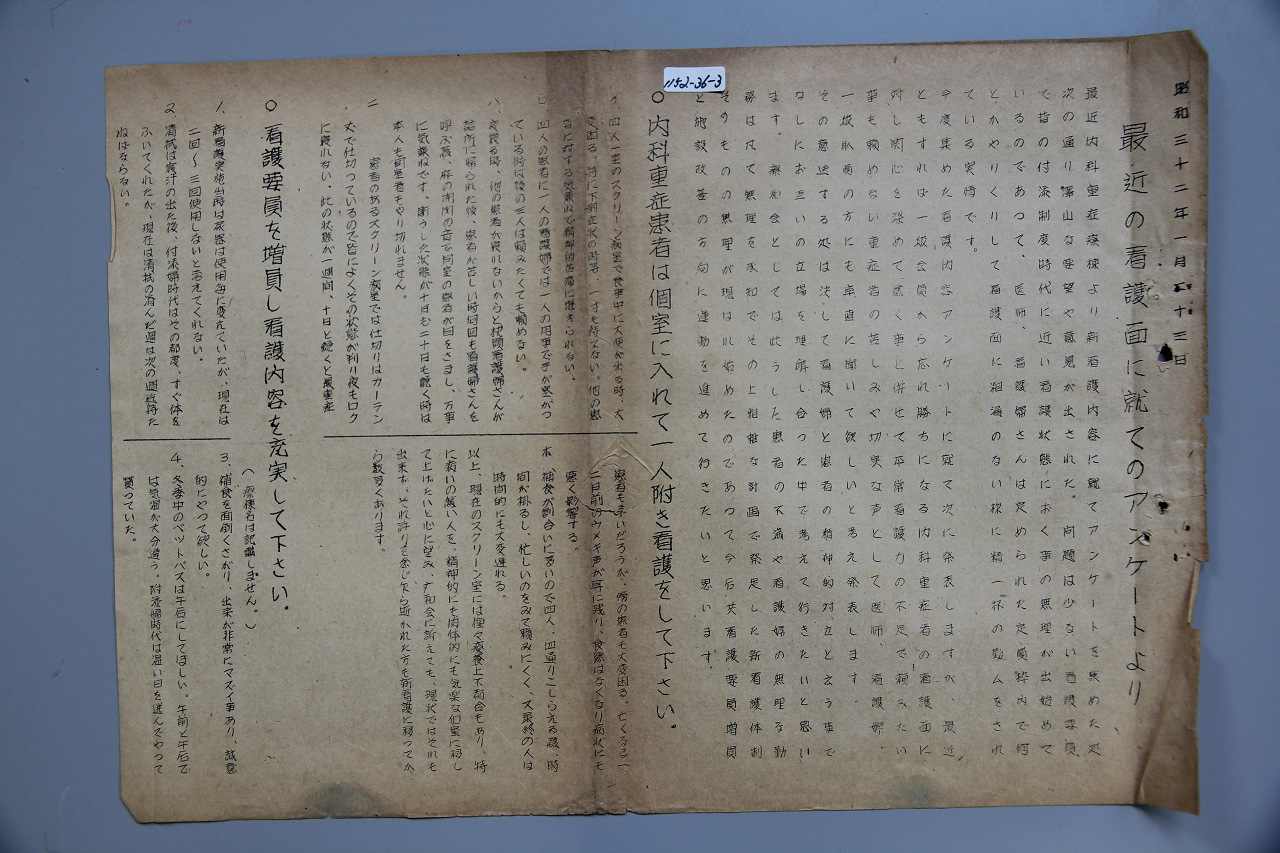 1152-36-3
昭和三十二年一月二十三日
最近の看護面に就てのアンケートより
最近内科重症病棟より新看護内容に就てアンケートを集めた処
次の通り沢山な要望や意見が出された。 問題は少ない看護要員
で皆の付添制度時代に近い看護状態におく事の無理が出始めて
いるのであつて、医師、看護婦さんは定められた定員枠内で何
とかやりくりして看護面に粗漏のない様に精一杯の勤ムをされ
ている実情です。
今度集めた看護内容アンケートに就て次に発表しますが、最近
ともすれば一般会員から忘れ勝ちになる内科重症者の看護面に
対し関心を深めて戴く事と併せて平常看護力の不足で頼みたい
事も頼めない重症者の苦しみや切実な声として医師、看護婦、
一般職員の方にも卒直に聞いて欲しいと考え発表します。
その意途する処は決して看護婦と患者の精神的対立と云う事で
なしにお互いの立場を理解し合つた中で考えて行きたいと思い
ます。 療和会としては此うした患者の不満や看護婦の無理な勤
務は凡て無理を承知でその上粗雑な計画で発足した新看護体制
そのものの無理が現はれ始めたのであつて今后共看護要員増員
と施設改善の方向に運動を進めて行きたいと思います。
○内科重症患者は個室に入れて一人附き看護をして下さい。
イ、四人一室のスクリーン病室で食事中に大便が出る時、大
変困る。特に下痢症状の時等、一寸も待てない。他の患
者に対する気兼ねで精神的苦痛に堪えられない。
ロ、四人の患者に一人の看護婦では一人の用事で手が塞がつ
ている時は後の三人は頼みたくても頼めない。
ハ、夜寝る時、他の患者が寝れないからと枕頭看護婦さんが
詰所に帰られた後、患者が苦しい時何回も看護婦さんを
呼ぶ為、扉の開閉の音で同室の患者が目をさまし、万事
に気兼ねです。斯うした状態が十日も二十日も続く時は
本人も同室者もやり切れません。
ニ、患者のあるスクリーン病室では仕切りはカーテン
丈で仕切つているので皆によくその状態が判り夜もロク
に寝れない。此の状態が一週間、十日と続くと最重症
患者も辛いだろうが、傍の患者も大変困る。亡くなる一
二日前のウメキ声が耳に残り、食慾はなくなり病状にも
悪く影響する。
ホ、補食が割合いに多いので四人、四通りこしらえる為、時
間が掛るし、忙しいのをみて頼みにくく、又最終の人は
時間的にも大変遅れる。
以上、現在のスクリーン室には種々療養上不都合もあり、特
に病いの篤い人を、精神的にも肉体的にも気楽な個室に移し
て上げたいと心に望み、ナ和会に訴えても、現状ではそれも
出来ず、それ許りを念じ乍ら逝かれた方も新看護に移つてか
ら数多くあります。
○看護要員を増員し看護内容を充実して下さい。
(病棟名は記載しません。)
1、新看護実施当時は尿器は使用毎に変えていたが、現在は
二回〜三回使用しないと考えてくれない。
2、清拭は寝汗の出た後、付添婦時代はその都度、すぐ体を
ふいてくれたが、現在は清拭の済んだ週は次の週迄待た
ねばならない。
3、補食を面倒くさがり、出来が非常にマズイ事あり、誠意
的にやつて欲しい。
4、冬季中のベットバスは午后にしてほしい。午前と午后で
は気温が大分違う。附添婦時代は温い日を選んでやつて
貰つていた。